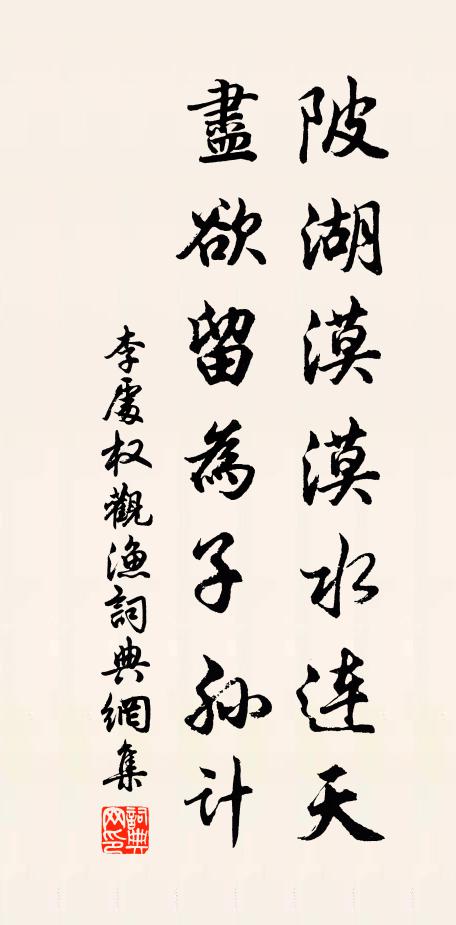 陂湖漠漠水连天
盡欲留為子孙计
李處权觀漁詞典網集
詞典
网印